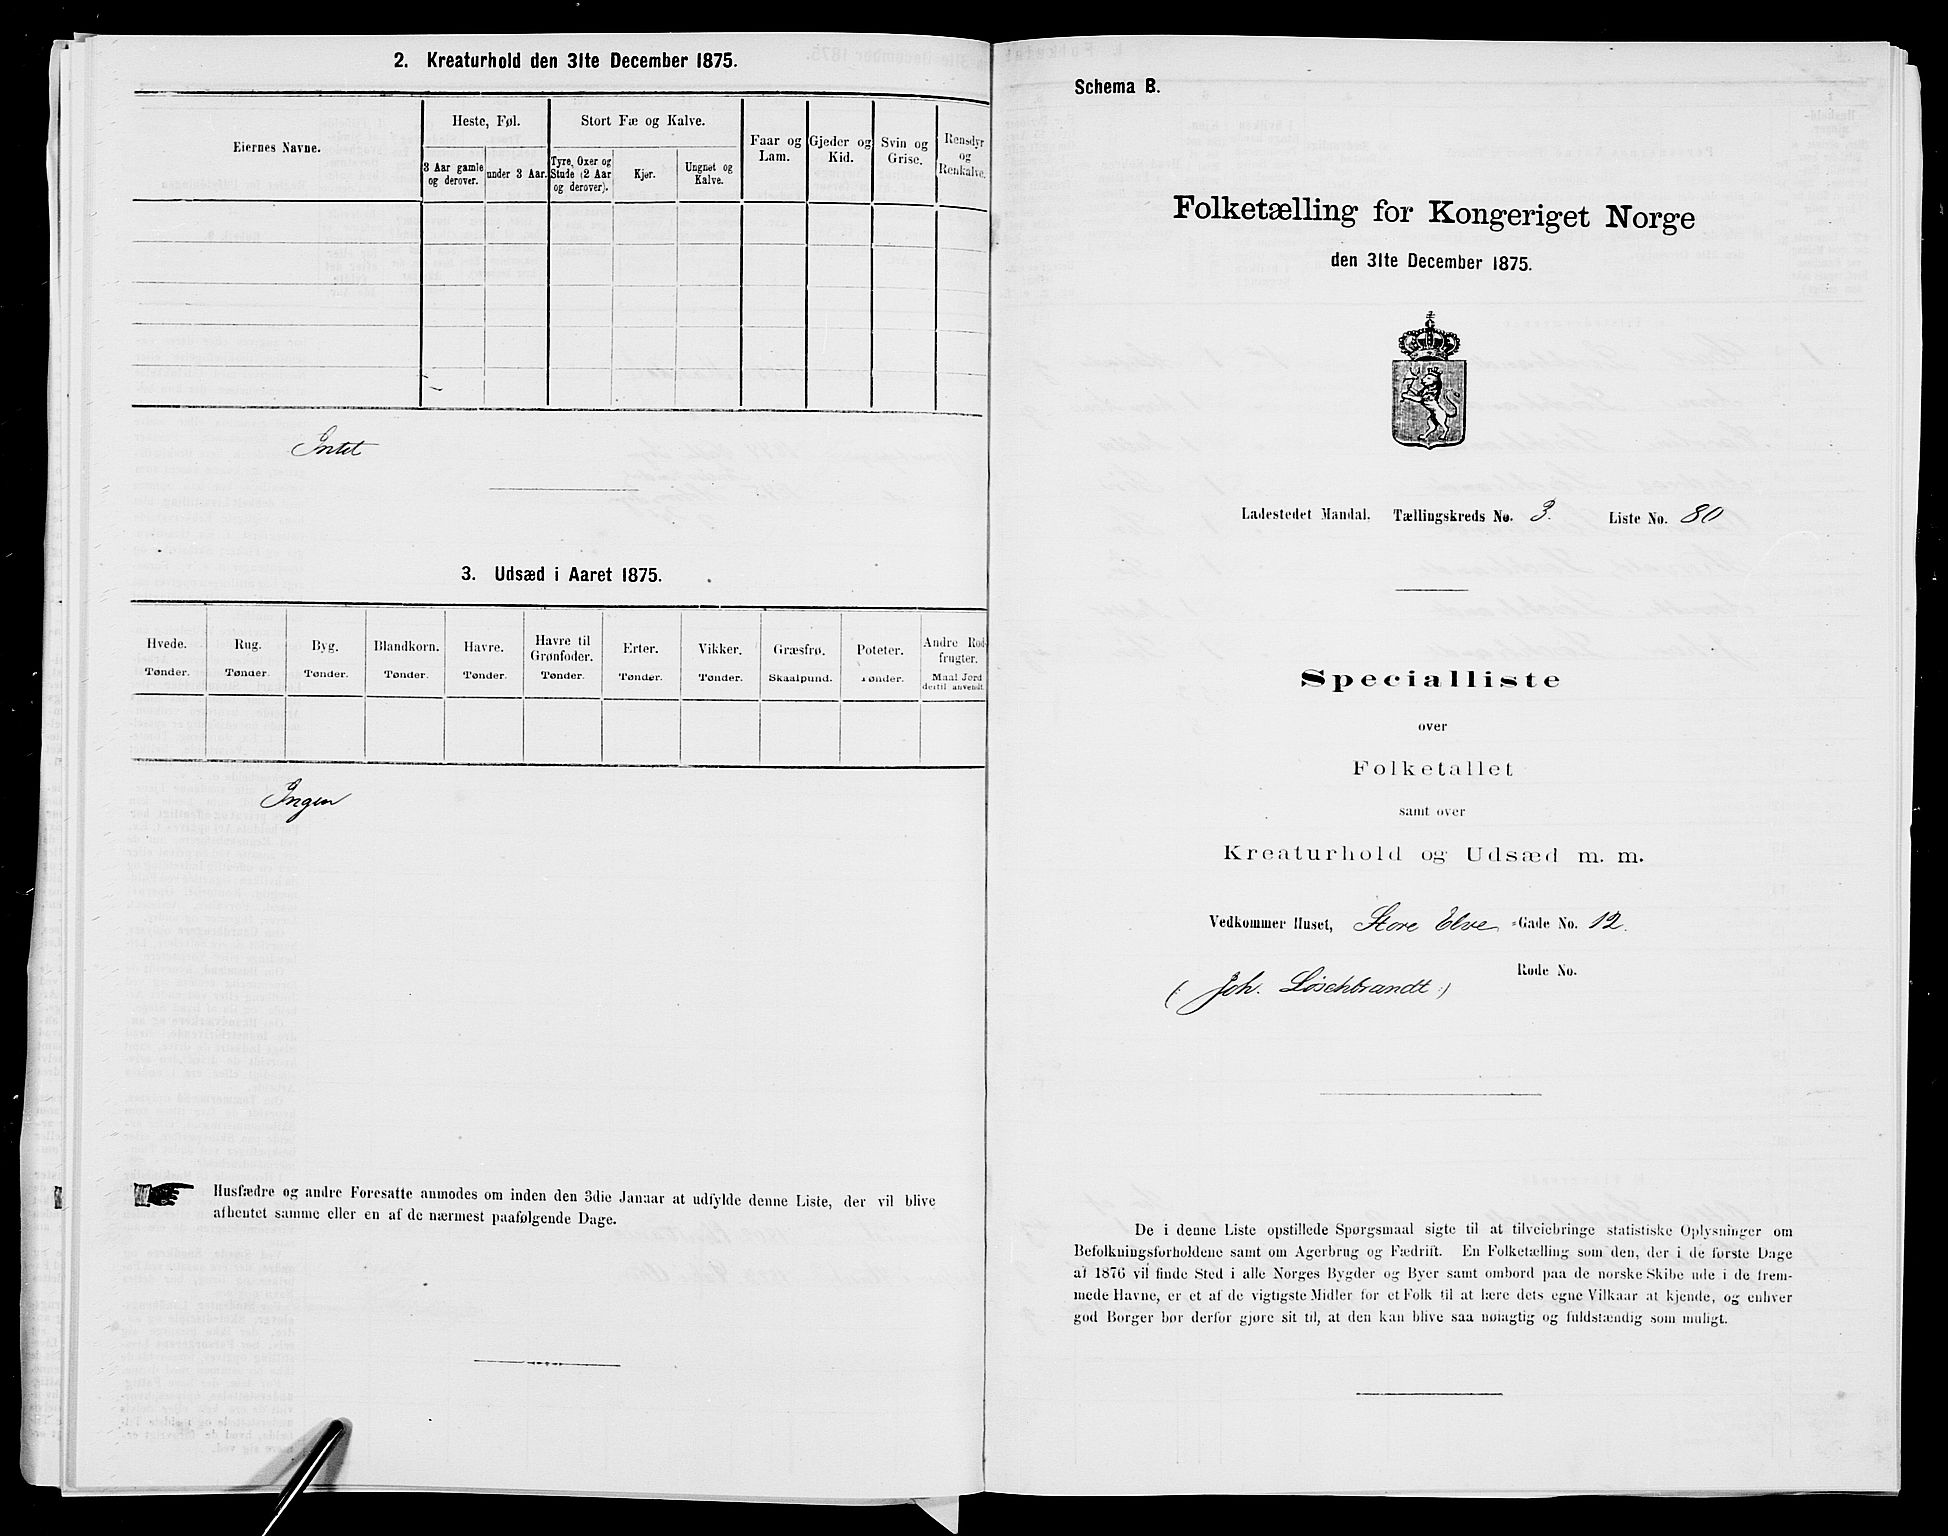 2. Kreaturhold den 31te December 1875.
Eiernes Navne.
Heste, Føl.
Stort Fæ og Kalve.
3 Aar gamle og derover.
under 3 Aar.
Tyre, Oxer og Stude (2 Aar og derover).
Kjør.
Ungnet og Kalve.
Faar og Lam.
Gjeder og Kid.
Svin og Grise.
Rensdyr og Renkalve.
Intet
3. Udsæd i Aaret 1875.
Hvede. Rug. Byg. Blandkorn. Havre. Havre til Grønfoder. Erter. Vikker. Græsfrø. Poteter. Andre Rodfrugter.
Tønder. Tønder. Tønder. Tønder. Tønder. Tønder. Tønder. Tønder. Skaalpund. Tønder. Maal Jord dertil anvendt.
Ingen
Husfædre og andre Foresatte anmodes om inden den 3die Januar at udfylde denne Liste, der vil blive
afhentet samme eller en af de nærmest paafølgende Dage.
Schema B.
Folketælling for Kongeriget Norge
den 31te December 1875.
Ladestedet Mandal. Tællingskreds No. 3. Liste No. 80
Specialliste
over
Folketallet
samt over
Kreaturhold og Udsæd m. m.
Vedkommer Huset, Store Elve -Gade No. 12.
Rode No.
(: Joh. Löschbrandt :)
De i denne Liste opstillede Spørgsmaal sigte til at tilveiebringe statistiske Oplysninger om
Befolkningsforholdene samt om Agerbrug og Fædrift. En Folketælling som den, der i de første Dage
af 1876 vil finde Sted i alle Norges Bygder og Byer samt ombord paa de norske Skibe ude i de frem-
mede Havne, er et af de vigtigste Midler for et Folk til at lære dets egne Vilkaar at kjende, og enhver
god Borger bør derfor gjøre sit til, at den kan blive saa nøiagtig og fuldstændig som muligt.